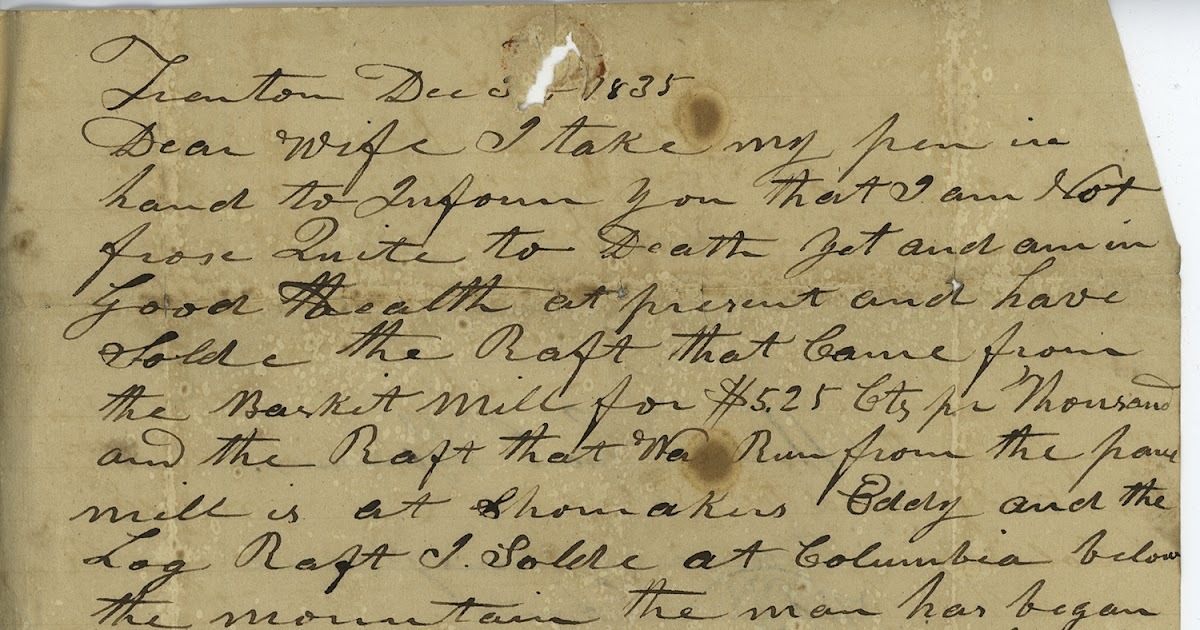 Trenton Dec 3 1835
Dear Wife I take my pen in
hand to Inform you that I am Not
frose Quite to Death yet and am in
Good Health at present and have
Solde the Raft that Came from
the Basket Mill for $5.25 Cts pr Thousand
and the Raft that Wa Run from the
mill is at Shomakers Eddy and the
Log Raft I Solde at Columbia below
the mountain the man has began